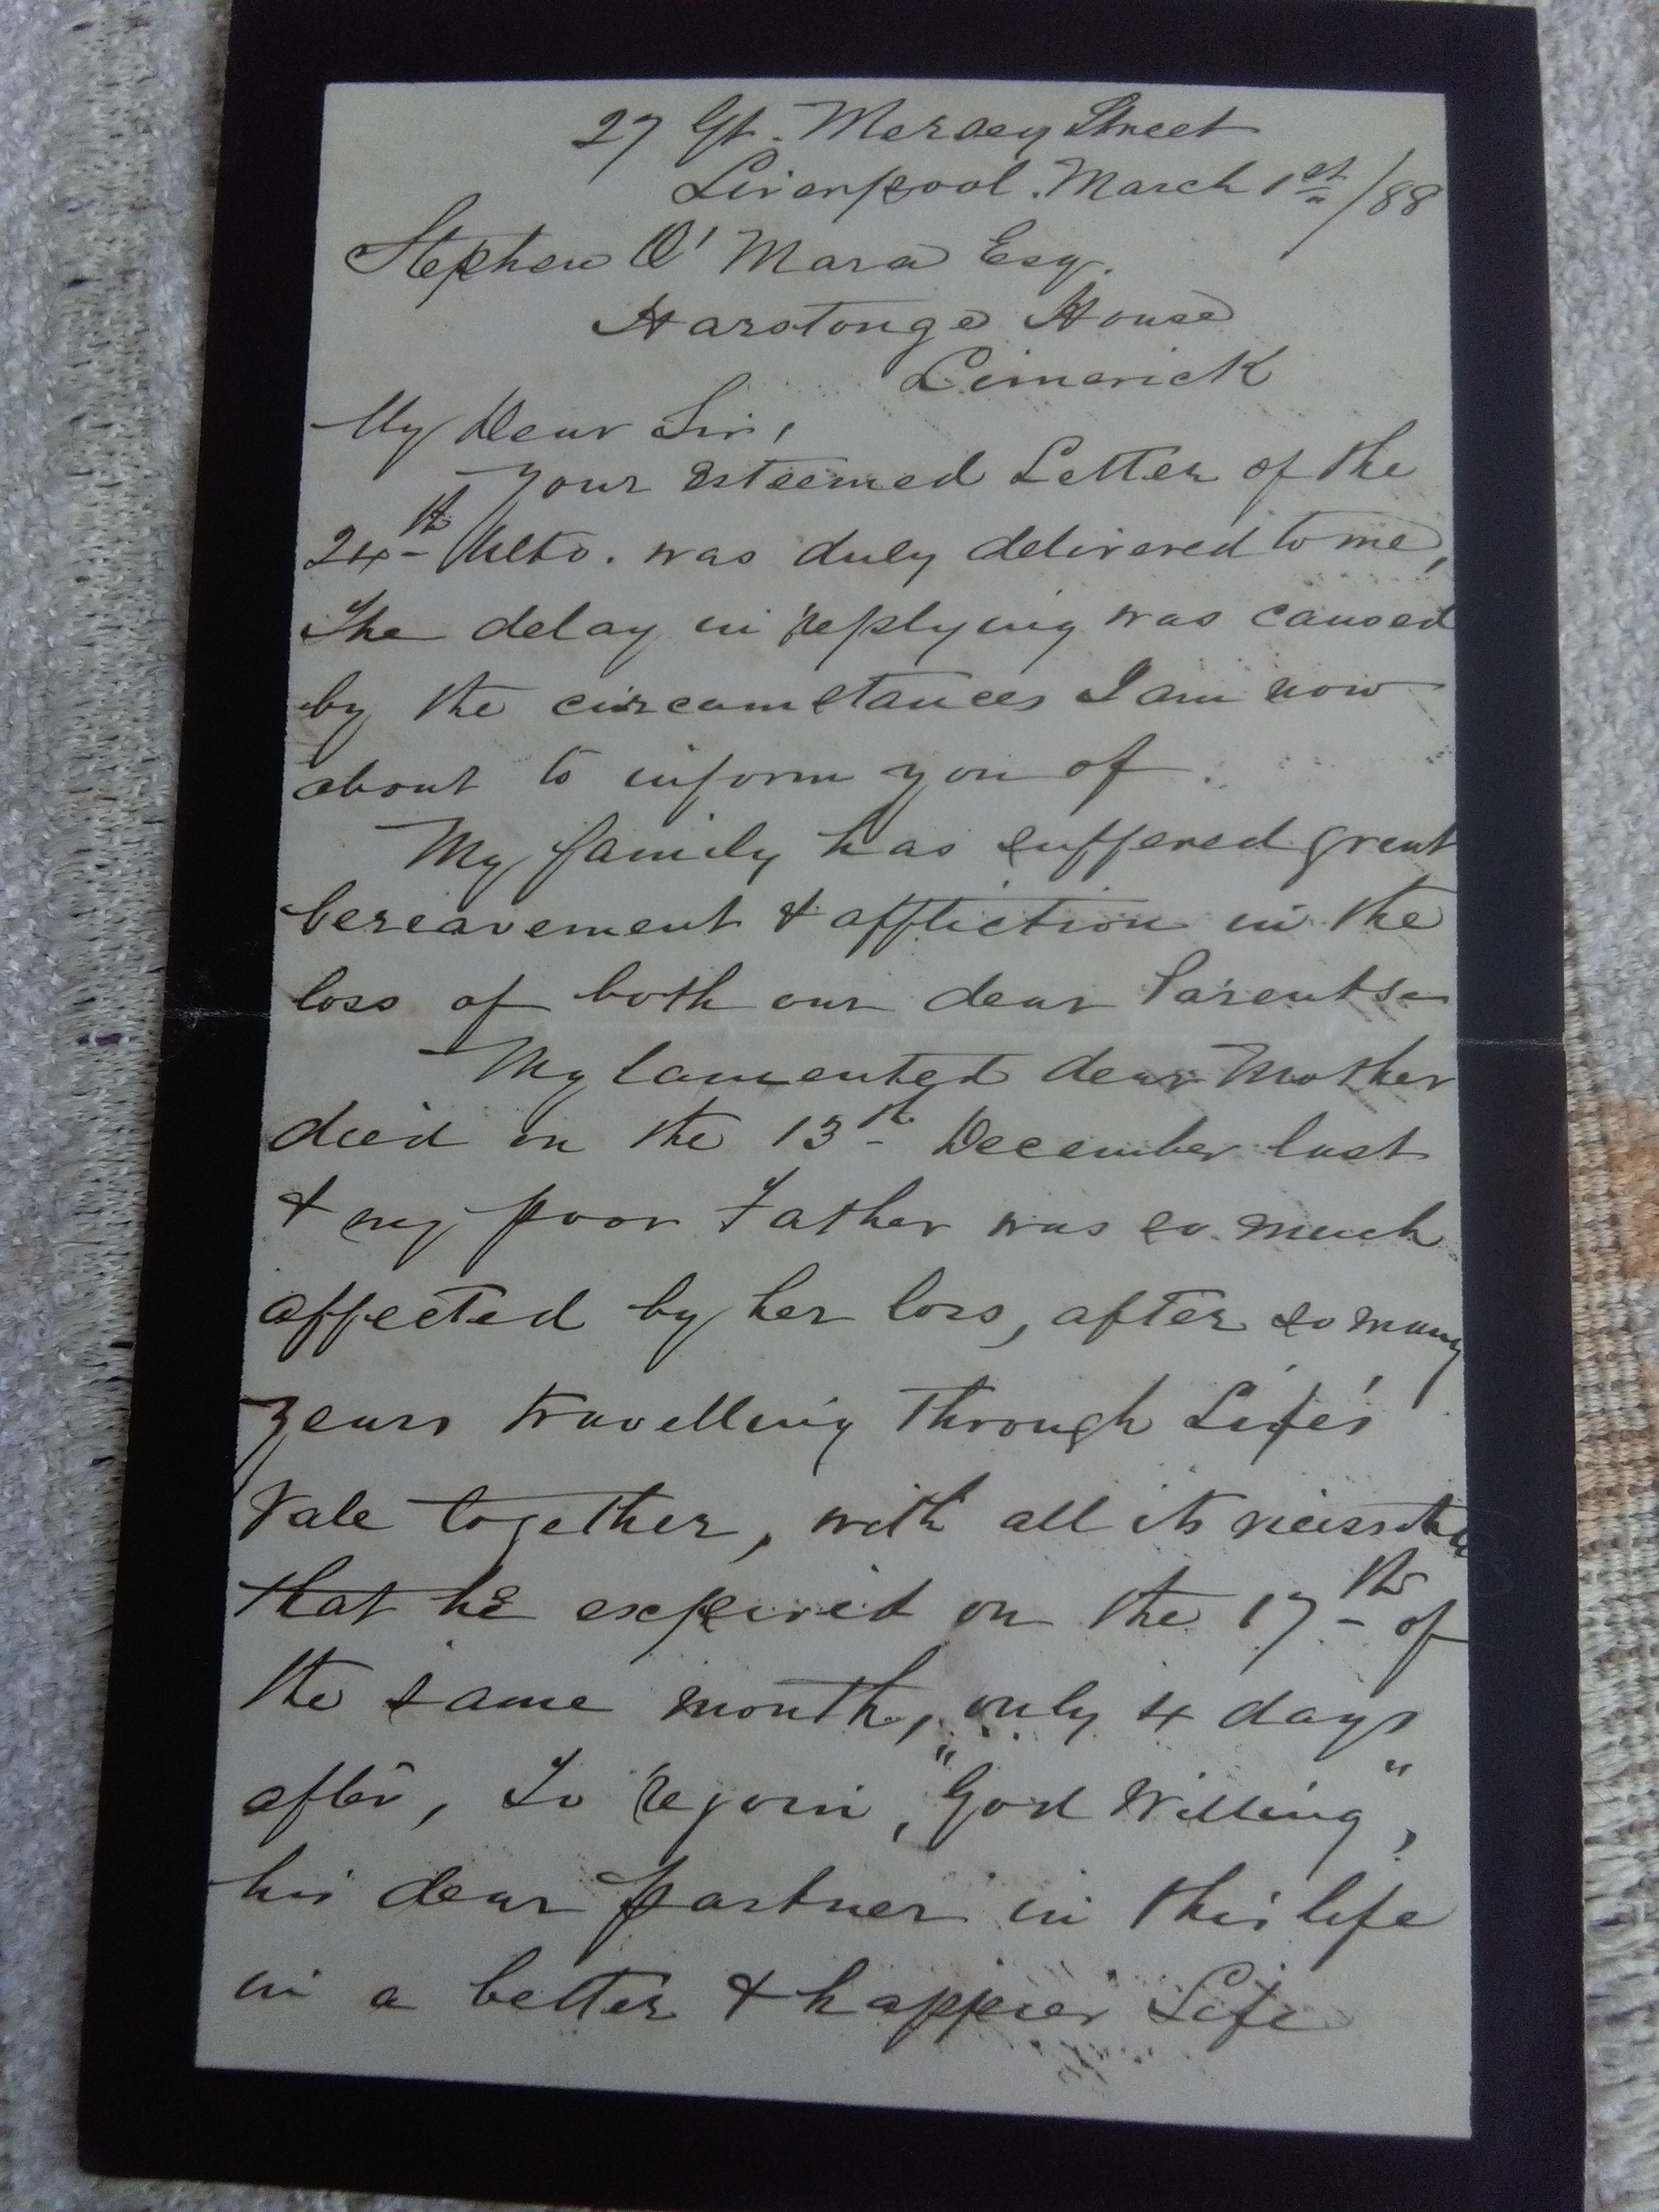 27 Gt. Mersey Street
Liverpool. March 1st/88
Stephen O'Mara Esq.
Harstonge House
Limerick
My Dear Sir,
Your esteemed Letter of the
24th Ulto. was duly delivered to me,
The delay in replying was caused
by the circumstances I am now
about to inform you of.
My family has suffered great
bereavement & affliction in the
loss of both our dear Parents
My lamented dear Mother
died on the 13th December last
& my poor Father was so much
affected by her loss, after so many
years travelling through Life's
Vale together, with all its
that he expired on the 17th of
the same month, only 4 days
after, To rejoin, "God Willing",
his dear partner in this life
in a better & happier Life